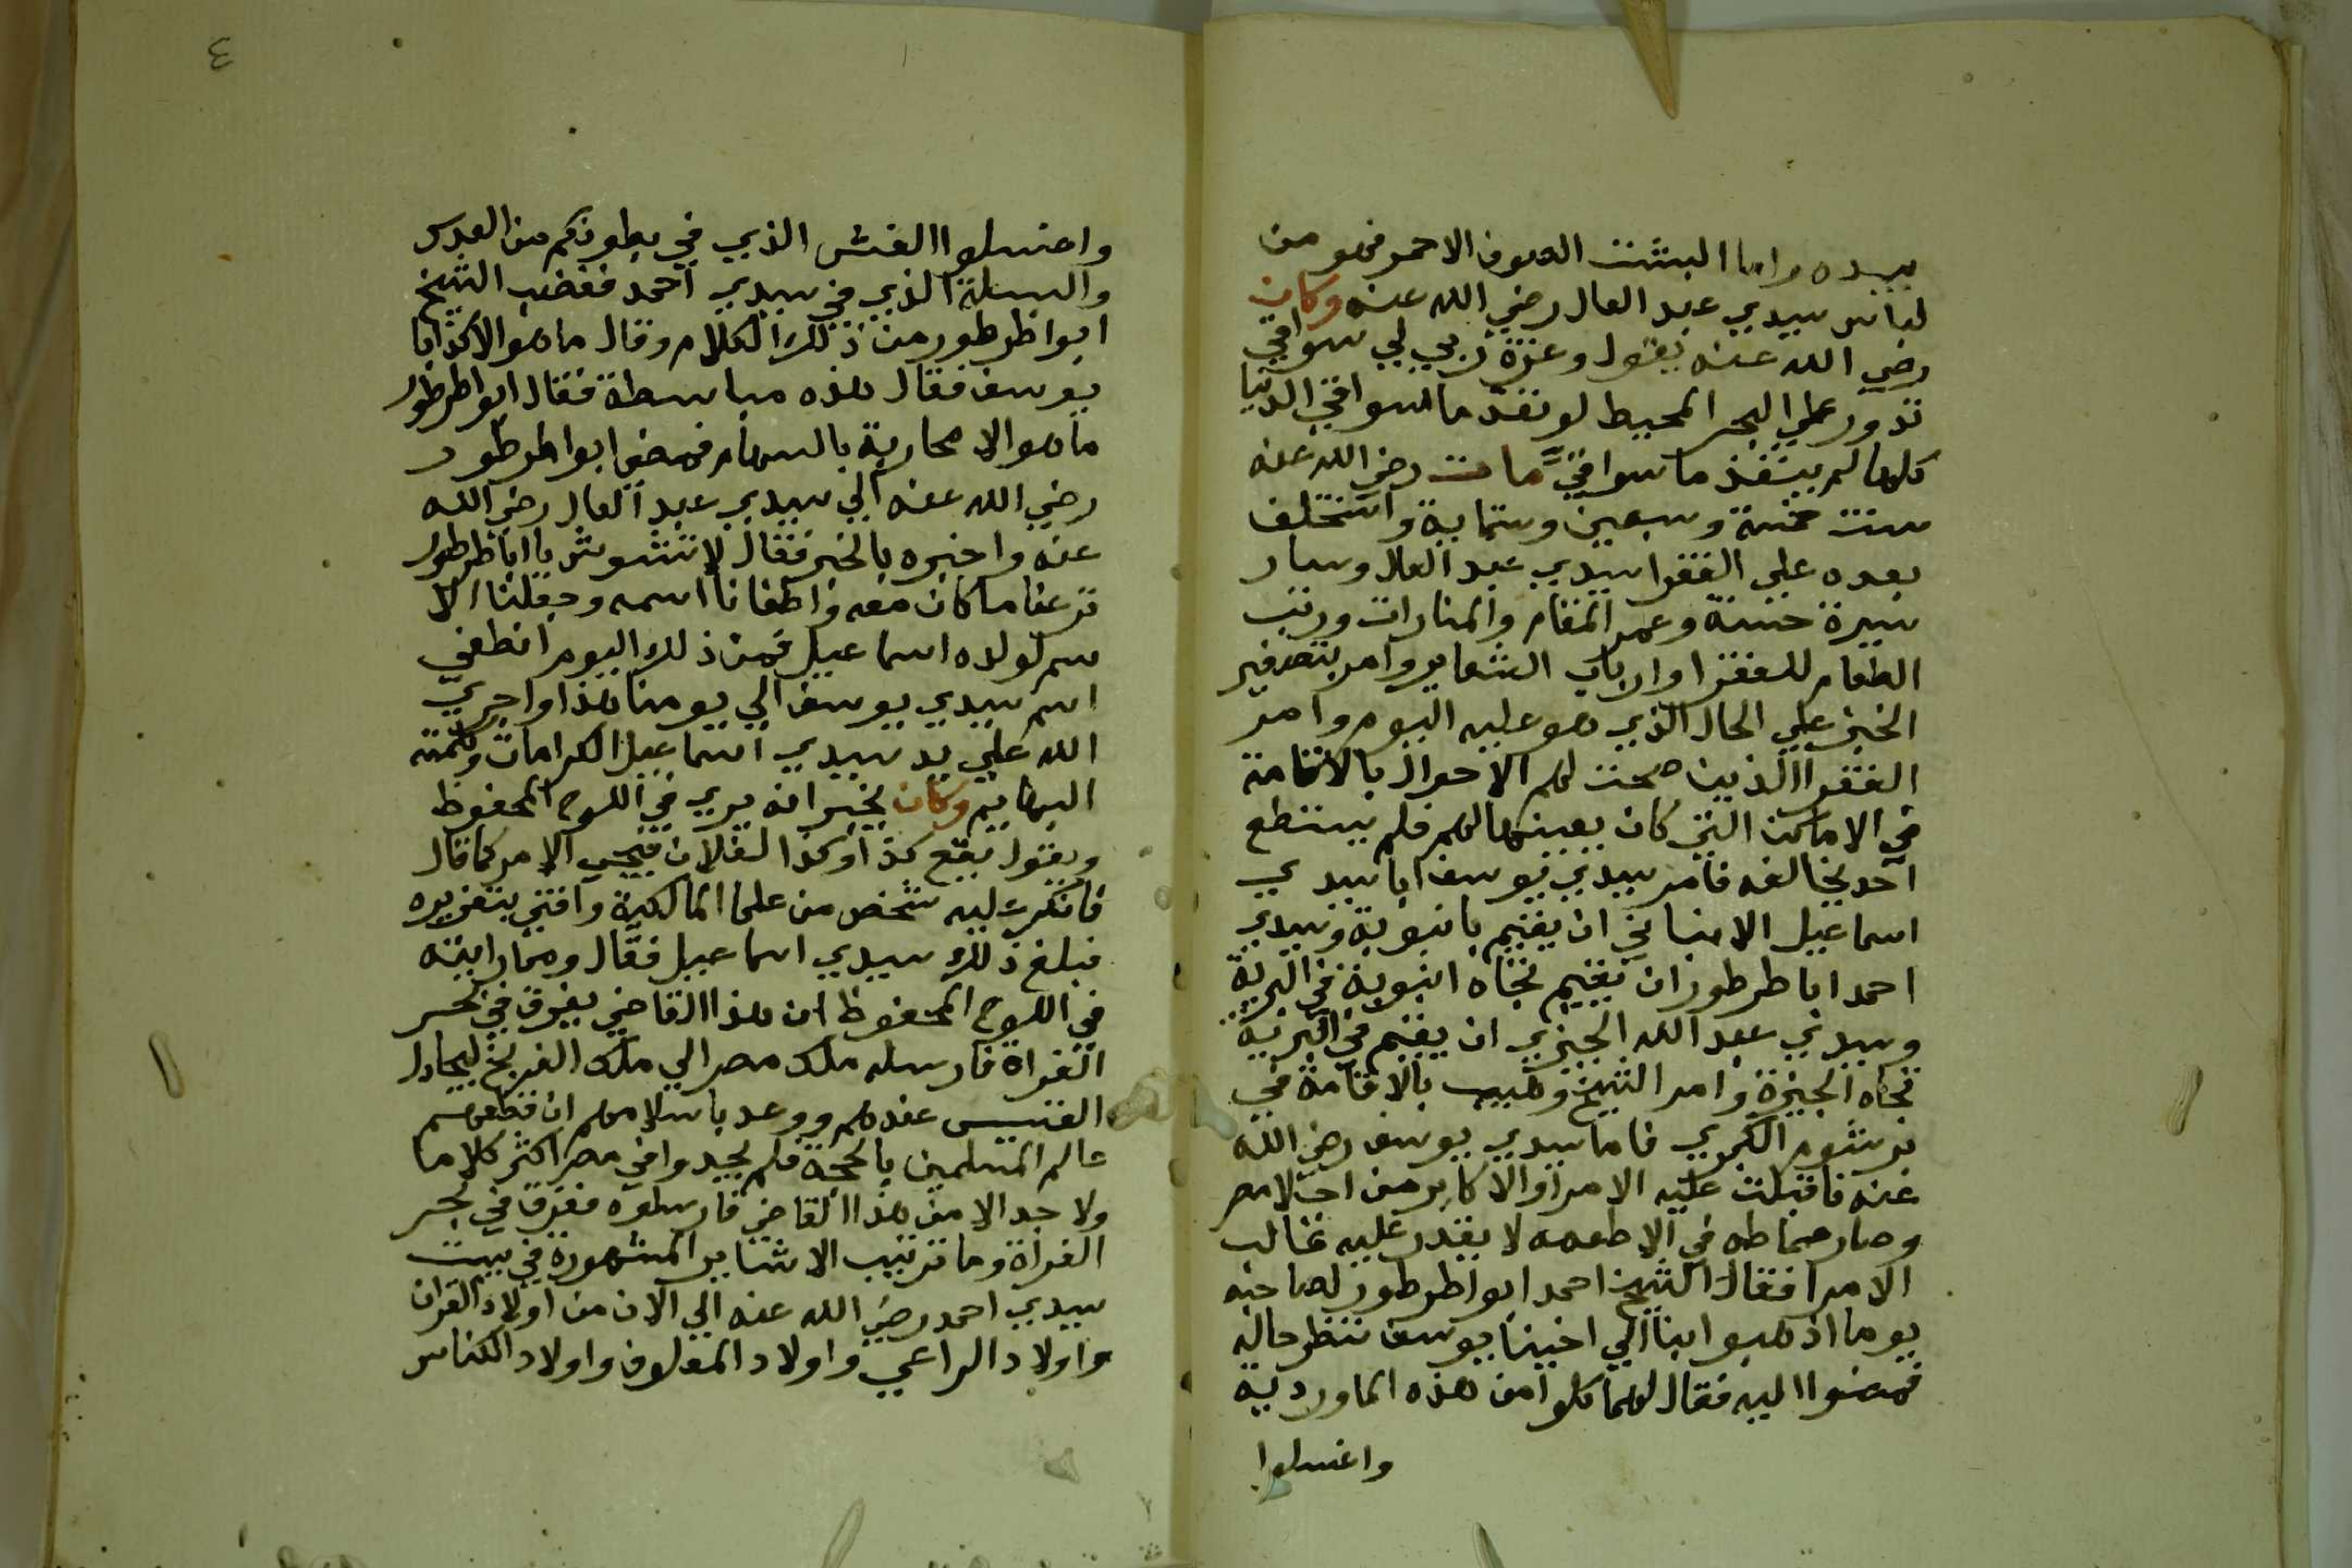 بيده واما البشت الصوف الاحمر فهو من
لباس سيدي عبد العال رضي الله عنه وكان
رضي الله عنه يقول وعزة ربي لي سواقي
تدور علي البحر المحيط لو نفد ما سواقي الدنيا
كلها لم ينفذ ما سواقي مات رضي الله عنه
سنت خمسة وسبعين وستماية واستخلف
بعده علي الفقرا سيدي عبد العال وسار
سيرة حسنة وعمر المقام والمنارات ورتب
الطعام للفقرا وارباب الشعاير وامر بتصغير
الخبز علي الحال الذي هو عليه اليوم وامر
الفقرا الذين صحت لهم الاحوال بالاقامة
في الاماكن التي كان يعينها لهم فلم يستطع
احد يخالفه فامر سيدي يوسف ابا سيدي
اسماعيل الانبابي ان يقيم بانبوبة وسيدي
احمد ابا طرطور ان يقيم تجاه انبوبة في البرية
وسيدي عبد الله الجيزي ان يقيم في البرية
تجاه الجيزة وامر الشيخ وهيب بالاقامة في
برشوم الكبري فاما سيدي يوسف رضي الله
عنه فاقبلت عليه الامرا والاكابر من اهل مصر
وصار سماطه في الاطعمه لا يقدر عليه غالب
الامرا فقال الشيخ احمد ابوا طرطور لصاحبه
يوما اذهبوا بنا الي اخينا يوسف ننظر حاله
فمضوا اليه فقال لهما كلوا من هذه الماوردية
واغسلوا
٤
واغسلوا الغش الذي في بطونكم من العدس
والبسلة الذي في سيدي احمد فغضب الشيخ
ابوا طرطور من ذلك الكلام وقال ما هو الا كذا يا
يوسف فقال هذه مباسطة فقال ابوا طرطور
ما هو الا محاربة بالسهام فمضي ابوا طرطور
رضي الله عنه الي سيدي عبد العال رضي الله
عنه واخبره بالخبر فقال لا تتشوش يا ابا طرطور
نزعنا ما كان معه واطفانا اسمه وجعلنا الا
سم لولده اسماعيل فمن ذلك اليوم انطفي
اسم سيدي يوسف الي يومنا هذا واجري
الله علي يد سيدي اسماعيل الكرامات وكلمته
البهايم وكان يخبر انه يري في اللوح المحفوظ
ويقول يقع كذا وكذا لفلان فيجي الامر كما قال
فانكر عليه شخص من علما المالكية وافتي بتعزيره
فبلغ ذلك سيدي اسماعيل فقال ومما رايته
في اللوح المحفوظ ان هذا القاضي يغرق في بحر
الفراة فارسله ملك مصر الي ملك الفرنج ليجادل
القسيس عندهم ووعد باسلامهم ان قطعهم
عالم المسلمين بالحجة فلم يجدوا في مصر اكثر كلاما
ولا جدالا من هذا القاضي فارسلوه فغرق في بحر
الفراة وما ترتيب الاشاير المشهورة في بيت
سيدي احمد رضي الله عنه الي الان من اولاد الفران
واولاد الراعي واولاد المعلوف واولاد الكناس